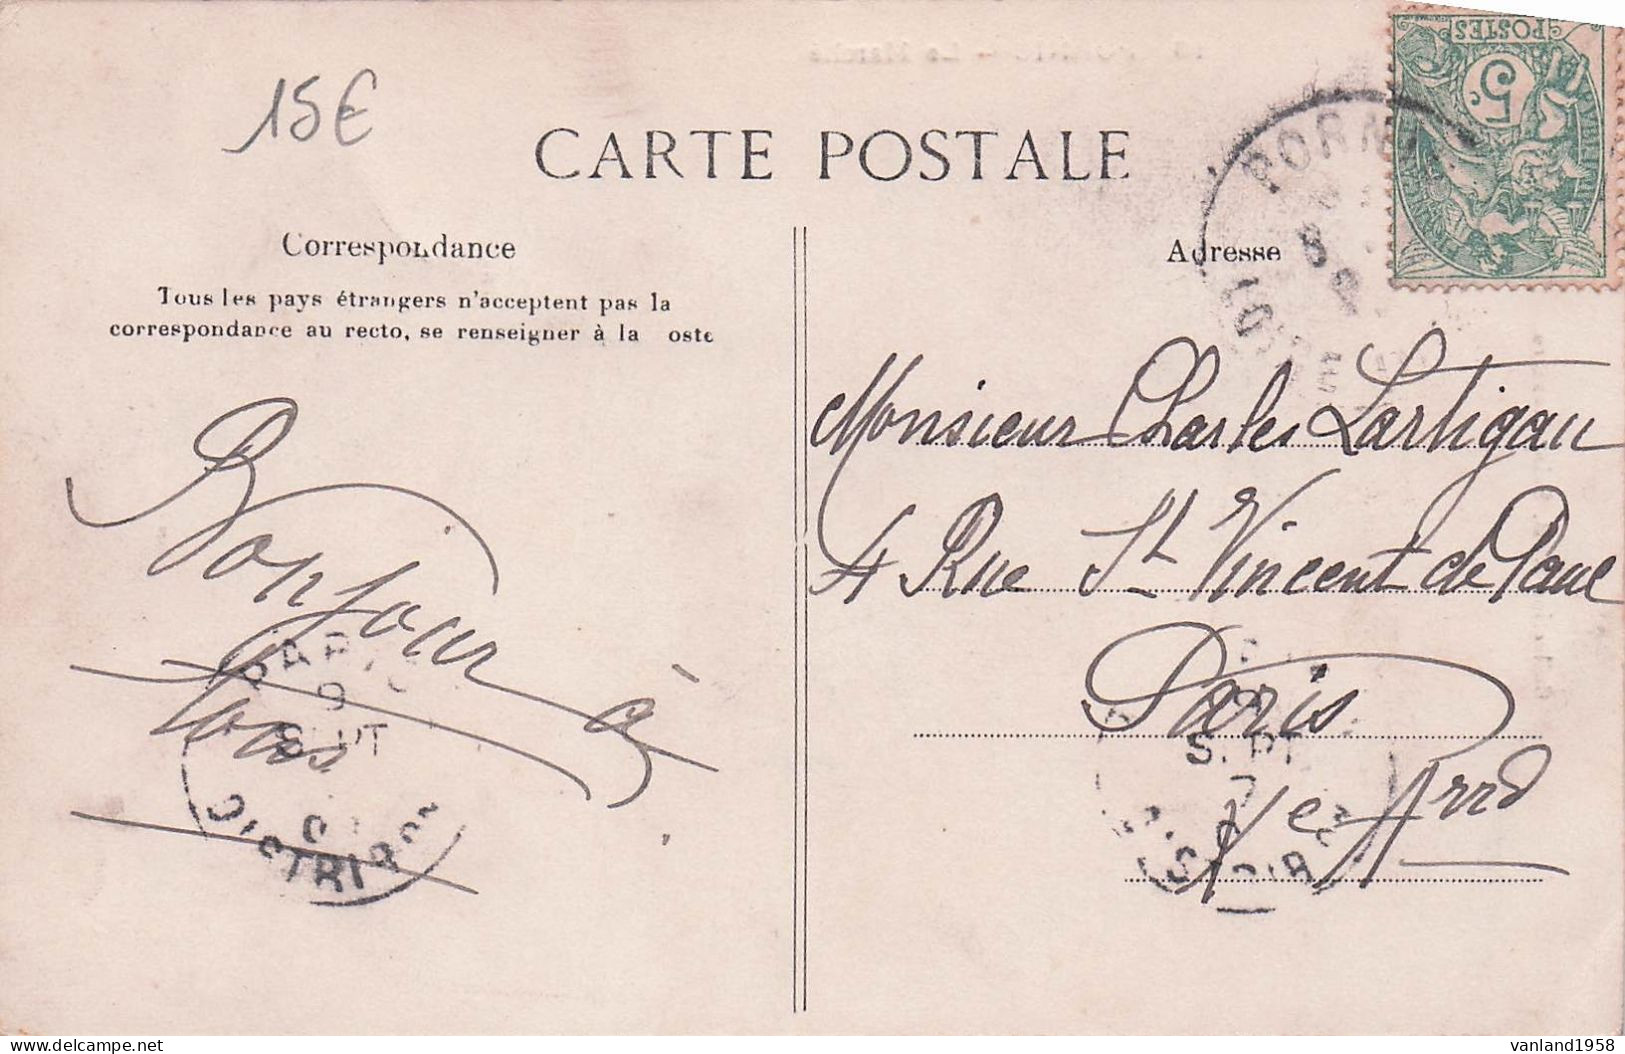 15€
CARTE POSTALE
POSTES
5c
Correspondance
Adresse
Tous les pays étrangers n'acceptent pas la
correspondance au recto, se renseigner à la oste
Bonjour à
tous.
Monsieur Charles Lartigau
4 Rue St Vincent de Paul
Paris
Xe Arrd
PORN
PARIS
9
SEPT
DISTRIB
S. PT
vanland1958